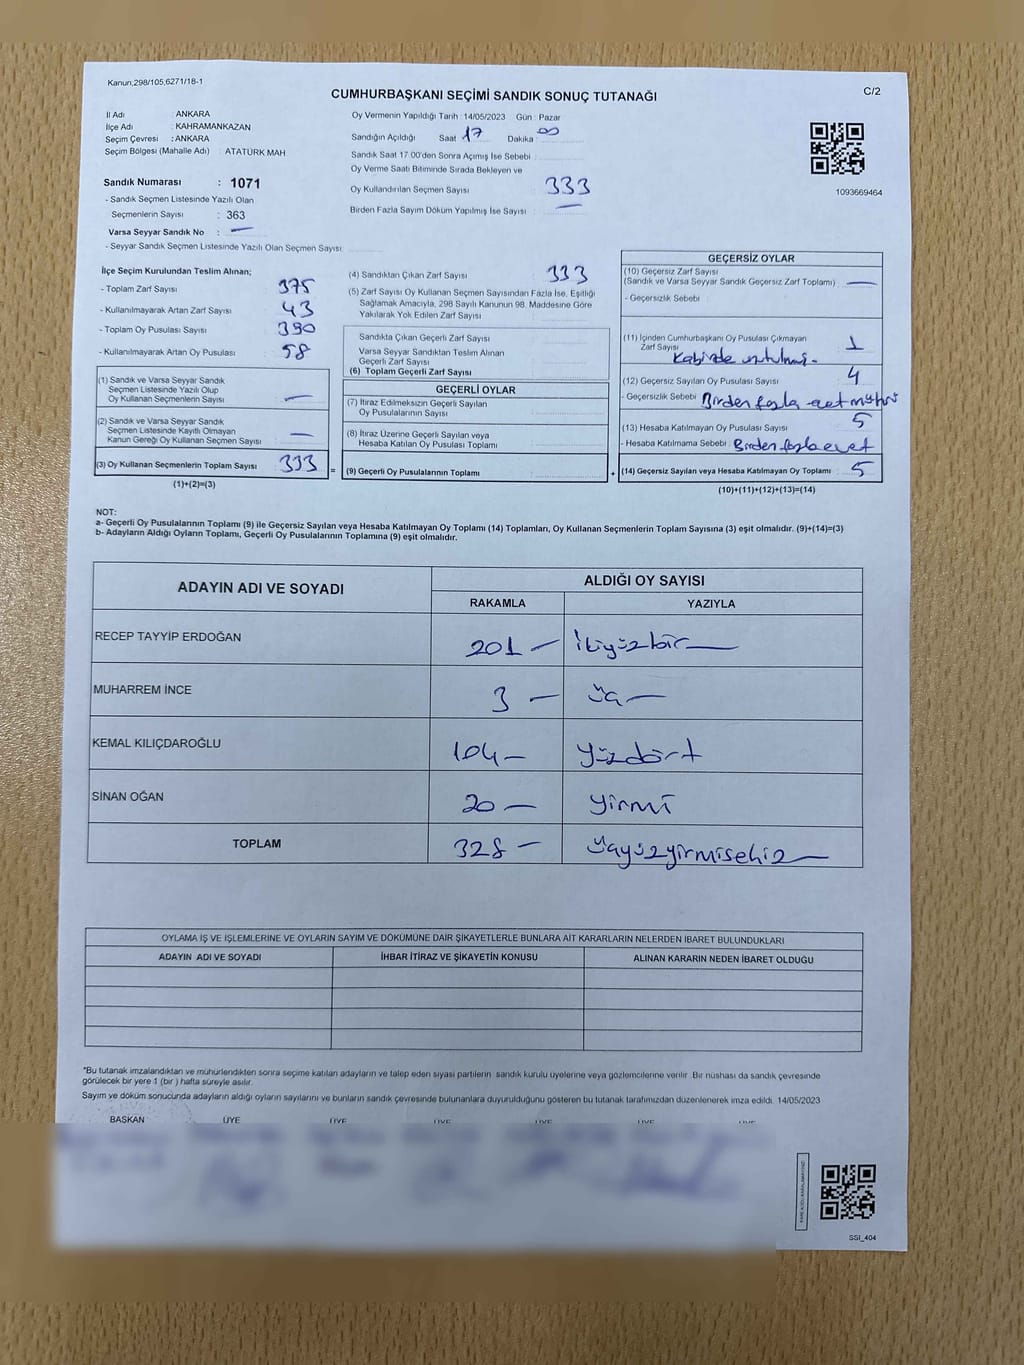 Kanun,298/105,6271/18-1
CUMHURBAŞKANI SEÇİMİ SANDIK SONUÇ TUTANAĞI
C/2
İl Adı : ANKARA
İlçe Adı : KAHRAMANKAZAN
Seçim Çevresi : ANKARA
Seçim Bölgesi (Mahalle Adı) : ATATÜRK MAH
Oy Vermenin Yapıldığı Tarih :14/05/2023 Gün : Pazar
Sandığın Açıldığı Saat 17 Dakika 00
Sandık Saat 17.00'den Sonra Açımış İse Sebebi :
Oy Verme Saati Bitiminde Sırada Bekleyen ve
Oy Kullandırılan Seçmen Sayısı : 333
Birden Fazla Sayım Döküm Yapılmış İse Sayısı : —
1093669464
Sandık Numarası : 1071
- Sandık Seçmen Listesinde Yazılı Olan
Seçmenlerin Sayısı : 363
Varsa Seyyar Sandık No : —
- Seyyar Sandık Seçmen Listesinde Yazılı Olan Seçmen Sayısı:
İlçe Seçim Kurulundan Teslim Alınan;
- Toplam Zarf Sayısı : 375
- Kullanılmayarak Artan Zarf Sayısı : 43
- Toplam Oy Pusulası Sayısı : 390
- Kullanılmayarak Artan Oy Pusulası : 58
(1) Sandık ve Varsa Seyyar Sandık
Seçmen Listesinde Yazılı Olup
Oy Kullanan Seçmenlerin Sayısı : —
(2) Sandık ve Varsa Seyyar Sandık
Seçmen Listesinde Kayıtlı Olmayan
Kanun Gereği Oy Kullanan Seçmen Sayısı : —
(3) Oy Kullanan Seçmenlerin Toplam Sayısı : 333
(1)+(2)=(3)
(4) Sandıktan Çıkan Zarf Sayısı : 333
(5) Zarf Sayısı Oy Kullanan Seçmen Sayısından Fazla İse, Eşitliği
Sağlamak Amacıyla, 298 Sayılı Kanunun 98. Maddesine Göre
Yakılarak Yok Edilen Zarf Sayısı :
Sandıkta Çıkan Geçerli Zarf Sayısı :
Varsa Seyyar Sandıktan Teslim Alınan
Geçerli Zarf Sayısı :
(6) Toplam Geçerli Zarf Sayısı :
GEÇERLİ OYLAR
(7) İtiraz Edilmeksizin Geçerli Sayılan
Oy Pusulalarının Sayısı :
(8) İtiraz Üzerine Geçerli Sayılan veya
Hesaba Katılan Oy Pusulası Toplamı :
= (9) Geçerli Oy Pusulalarının Toplamı :
GEÇERSİZ OYLAR
(10) Geçersiz Zarf Sayısı
(Sandık ve Varsa Seyyar Sandık Geçersiz Zarf Toplamı) : —
- Geçersizlik Sebebi :
(11) İçinden Cumhurbaşkanı Oy Pusulası Çıkmayan
Zarf Sayısı : 1
Kabinde unutulmuş.
(12) Geçersiz Sayılan Oy Pusulası Sayısı : 4
- Geçersizlik Sebebi : Birden fazla evet mührü
(13) Hesaba Katılmayan Oy Pusulası Sayısı : 5
- Hesaba Katılmama Sebebi : Birden fazla evet
+ (14) Geçersiz Sayılan veya Hesaba Katılmayan Oy Toplamı : 5
(10)+(11)+(12)+(13)=(14)
NOT:
a- Geçerli Oy Pusulalarının Toplamı (9) ile Geçersiz Sayılan veya Hesaba Katılmayan Oy Toplamı (14) Toplamları, Oy Kullanan Seçmenlerin Toplam Sayısına (3) eşit olmalıdır. (9)+(14)=(3)
b- Adayların Aldığı Oyların Toplamı, Geçerli Oy Pusulalarının Toplamına (9) eşit olmalıdır.
ADAYIN ADI VE SOYADI ALDIĞI OY SAYISI
RAKAMLA YAZIYLA
RECEP TAYYİP ERDOĞAN 201 — ikiyüzbir —
MUHARREM İNCE 3 — üç —
KEMAL KILIÇDAROĞLU 104 — yüzdört
SİNAN OĞAN 20 — yirmi
TOPLAM 328 — üçyüzyirmisekiz —
OYLAMA İŞ VE İŞLEMLERİNE VE OYLARIN SAYIM VE DÖKÜMÜNE DAİR ŞİKAYETLERLE BUNLARA AİT KARARLARIN NELERDEN İBARET BULUNDUKLARI
ADAYIN ADI VE SOYADI İHBAR İTİRAZ VE ŞİKAYETİN KONUSU ALINAN KARARIN NEDEN İBARET OLDUĞU
*Bu tutanak imzalandıktan ve mühürlendikten sonra seçime katılan adayların ve talep eden siyasi partilerin sandık kurulu üyelerine veya gözlemcilerine verilir. Bir nüshası da sandık çevresinde
görülecek bir yere 1 (bir ) hafta süreyle asılır.
Sayım ve döküm sonucunda adayların aldığı oyların sayılarını ve bunların sandık çevresinde bulunanlara duyurulduğunu gösteren bu tutanak tarafımızdan düzenlenerek imza edildi. 14/05/2023
BAŞKAN ÜYE ÜYE ÜYE ÜYE ÜYE ÜYE
SSI_404